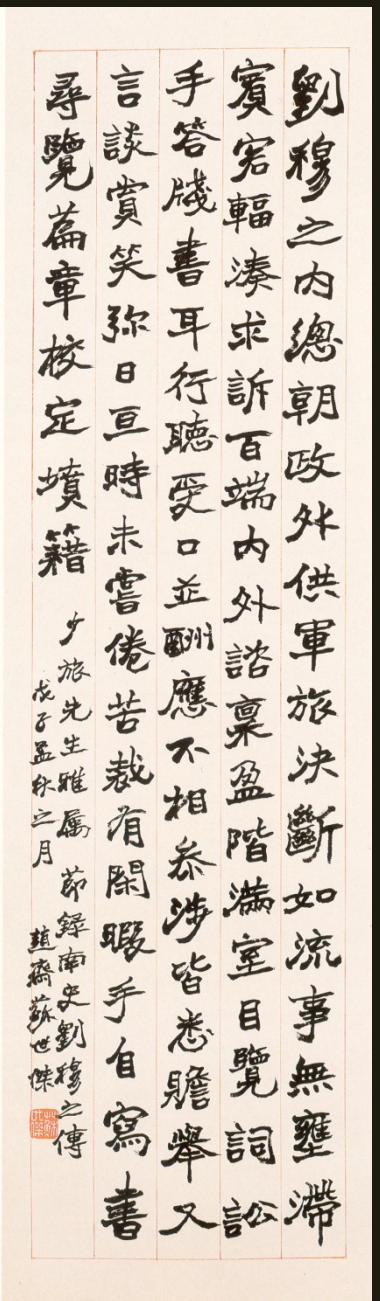 劉穆之内總朝政外供軍旅決斷如流事無壅滯
賓客輻湊求訴百端内外諮禀盈階滿室目覽詞訟
手答牋書耳行聽受口並酬應不相叅涉皆悉贍舉又
言談賞笑弥日亘時未嘗倦苦裁有閑暇手自寫書
尋覽篇章校定墳籍
少旅先生雅属 節錄南史劉穆之傳
戊子孟秋之月 趙齋蘇世傑